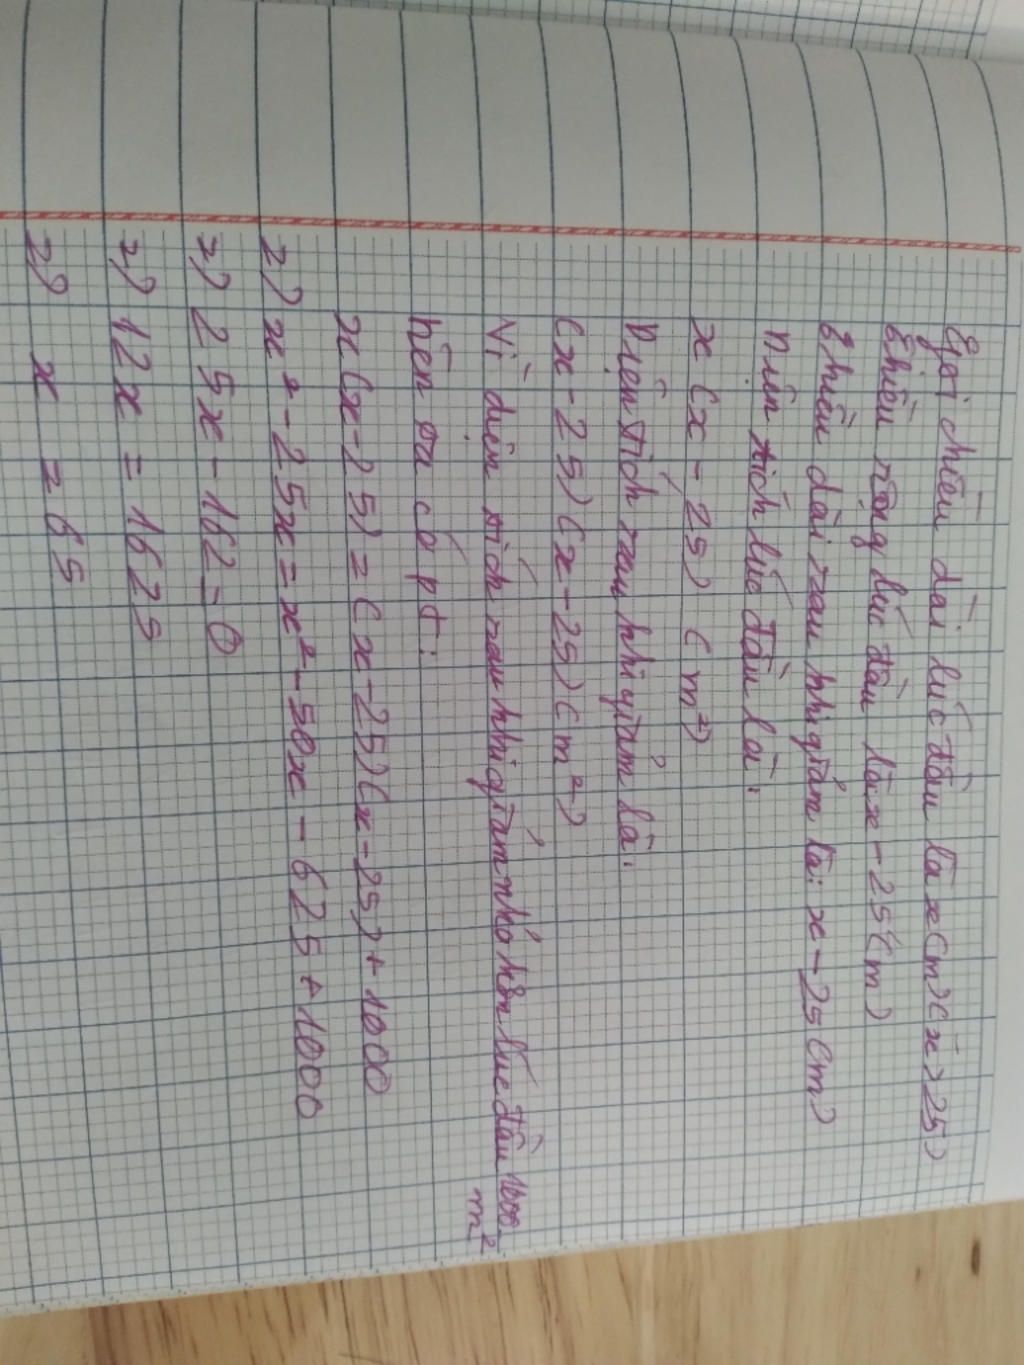 Gọi chiều dài lúc đầu là x(m)(x>25)
Chiều rộng lúc đầu là x-25(m)
Chiều dài sau khi giảm là: x-25(m)
Diện tích lúc đầu là:
x(x-25) (m²)
Diện tích sau khi giảm là:
(x-25)(x-25)(m²)
Vì diện tích sau khi giảm nhỏ hơn lúc đầu 1000 m²
nên ta có pt:
x(x-25)=(x-25)(x-25)+1000
=) x²-25x=x²-50x-625+1000
=) 25x-162=0
=) 12x=1625
=) x=65